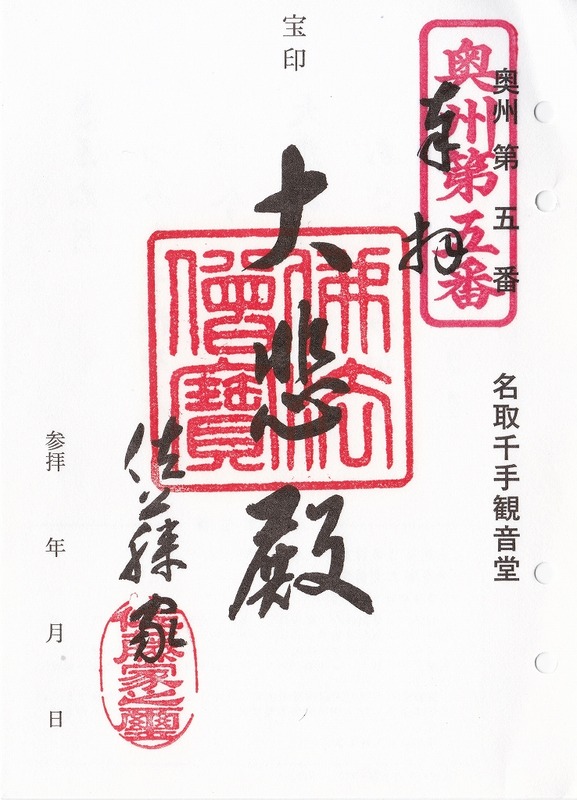 奥州第五番
奥州第五番　名取千手観音堂
奉拝
宝印
大悲殿
佛法僧寳
佐藤家
佐藤家之璽
参拝　年　月　日